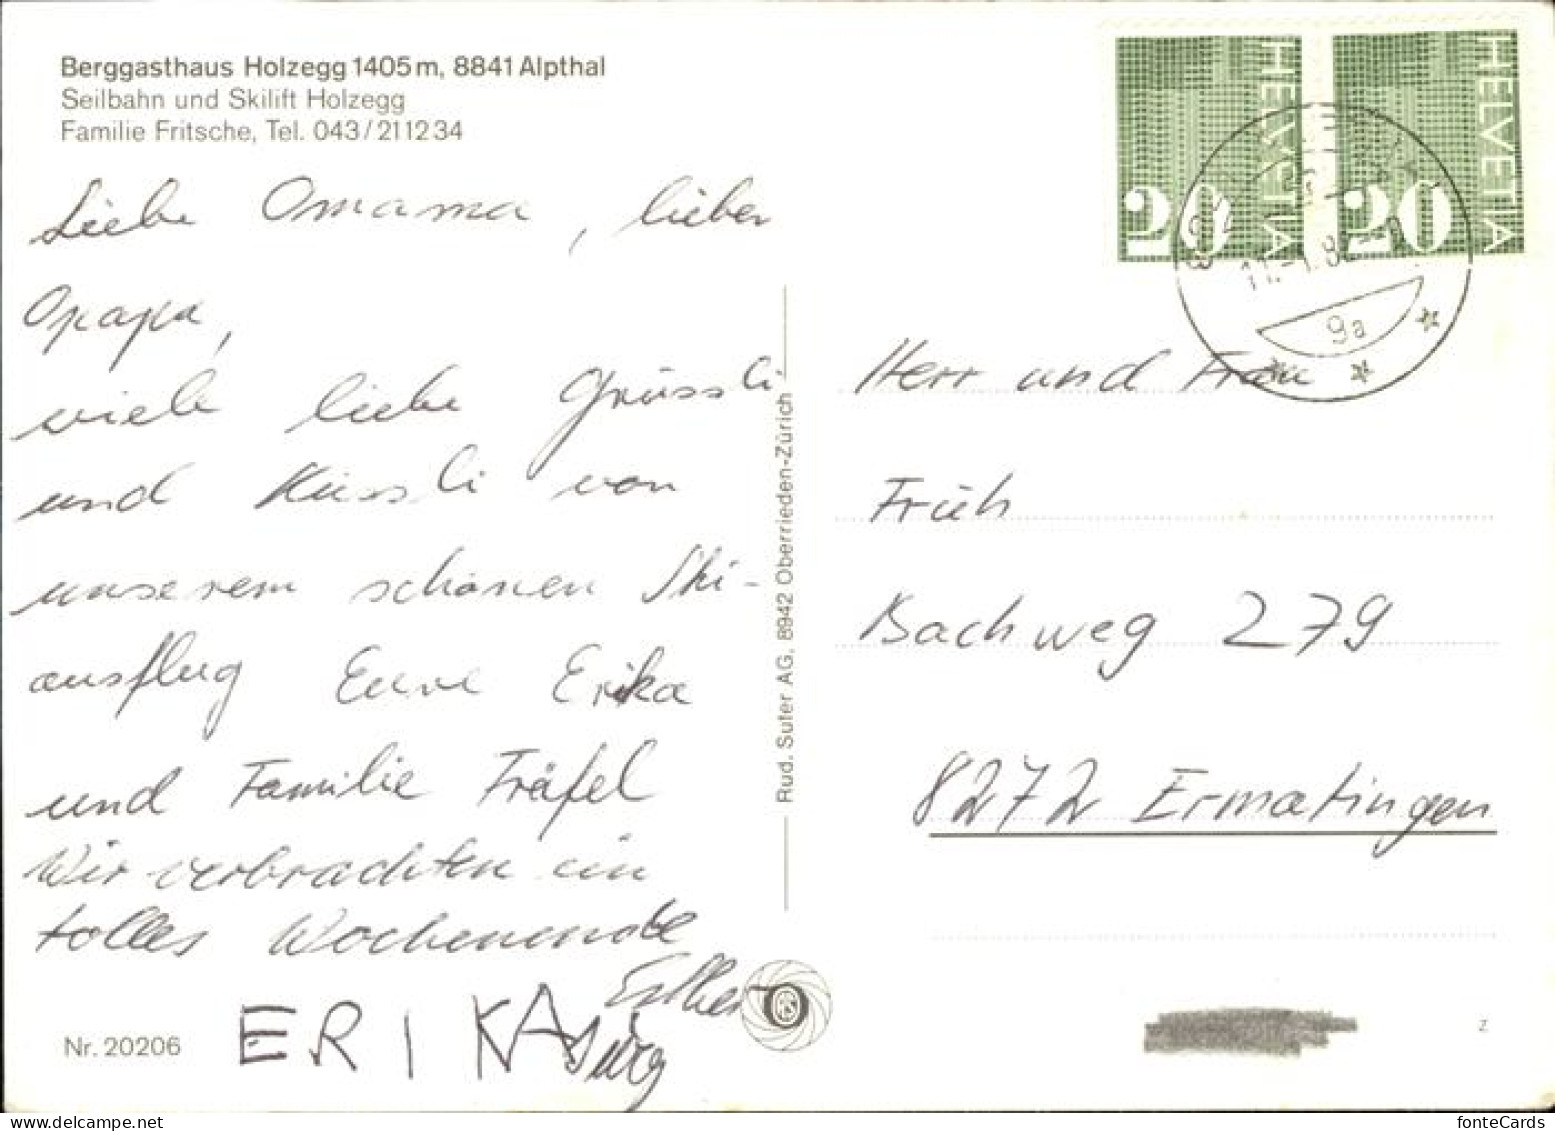 Berggasthaus Holzegg 1405 m, 8841 Alpthal
Seilbahn und Skilift Holzegg
Familie Fritsche, Tel. 043/211234
Liebe Omama, lieber
Opapa,
viele liebe Grüssli
und Küssli von
unserem schönen Ski-
ausflug Eure Erika
und Familie Fräfel
Wir verbrachten ein
tolles Wochenende
Esther
ERIKA
Jürg
Nr. 20206
Rud. Suter AG, 8942 Oberrieden-Zürich
HELVETIA
20
HELVETIA
20
9a
Herr und Frau
Früh
Bachweg 279
8272 Ermatingen
Z
fonteCards